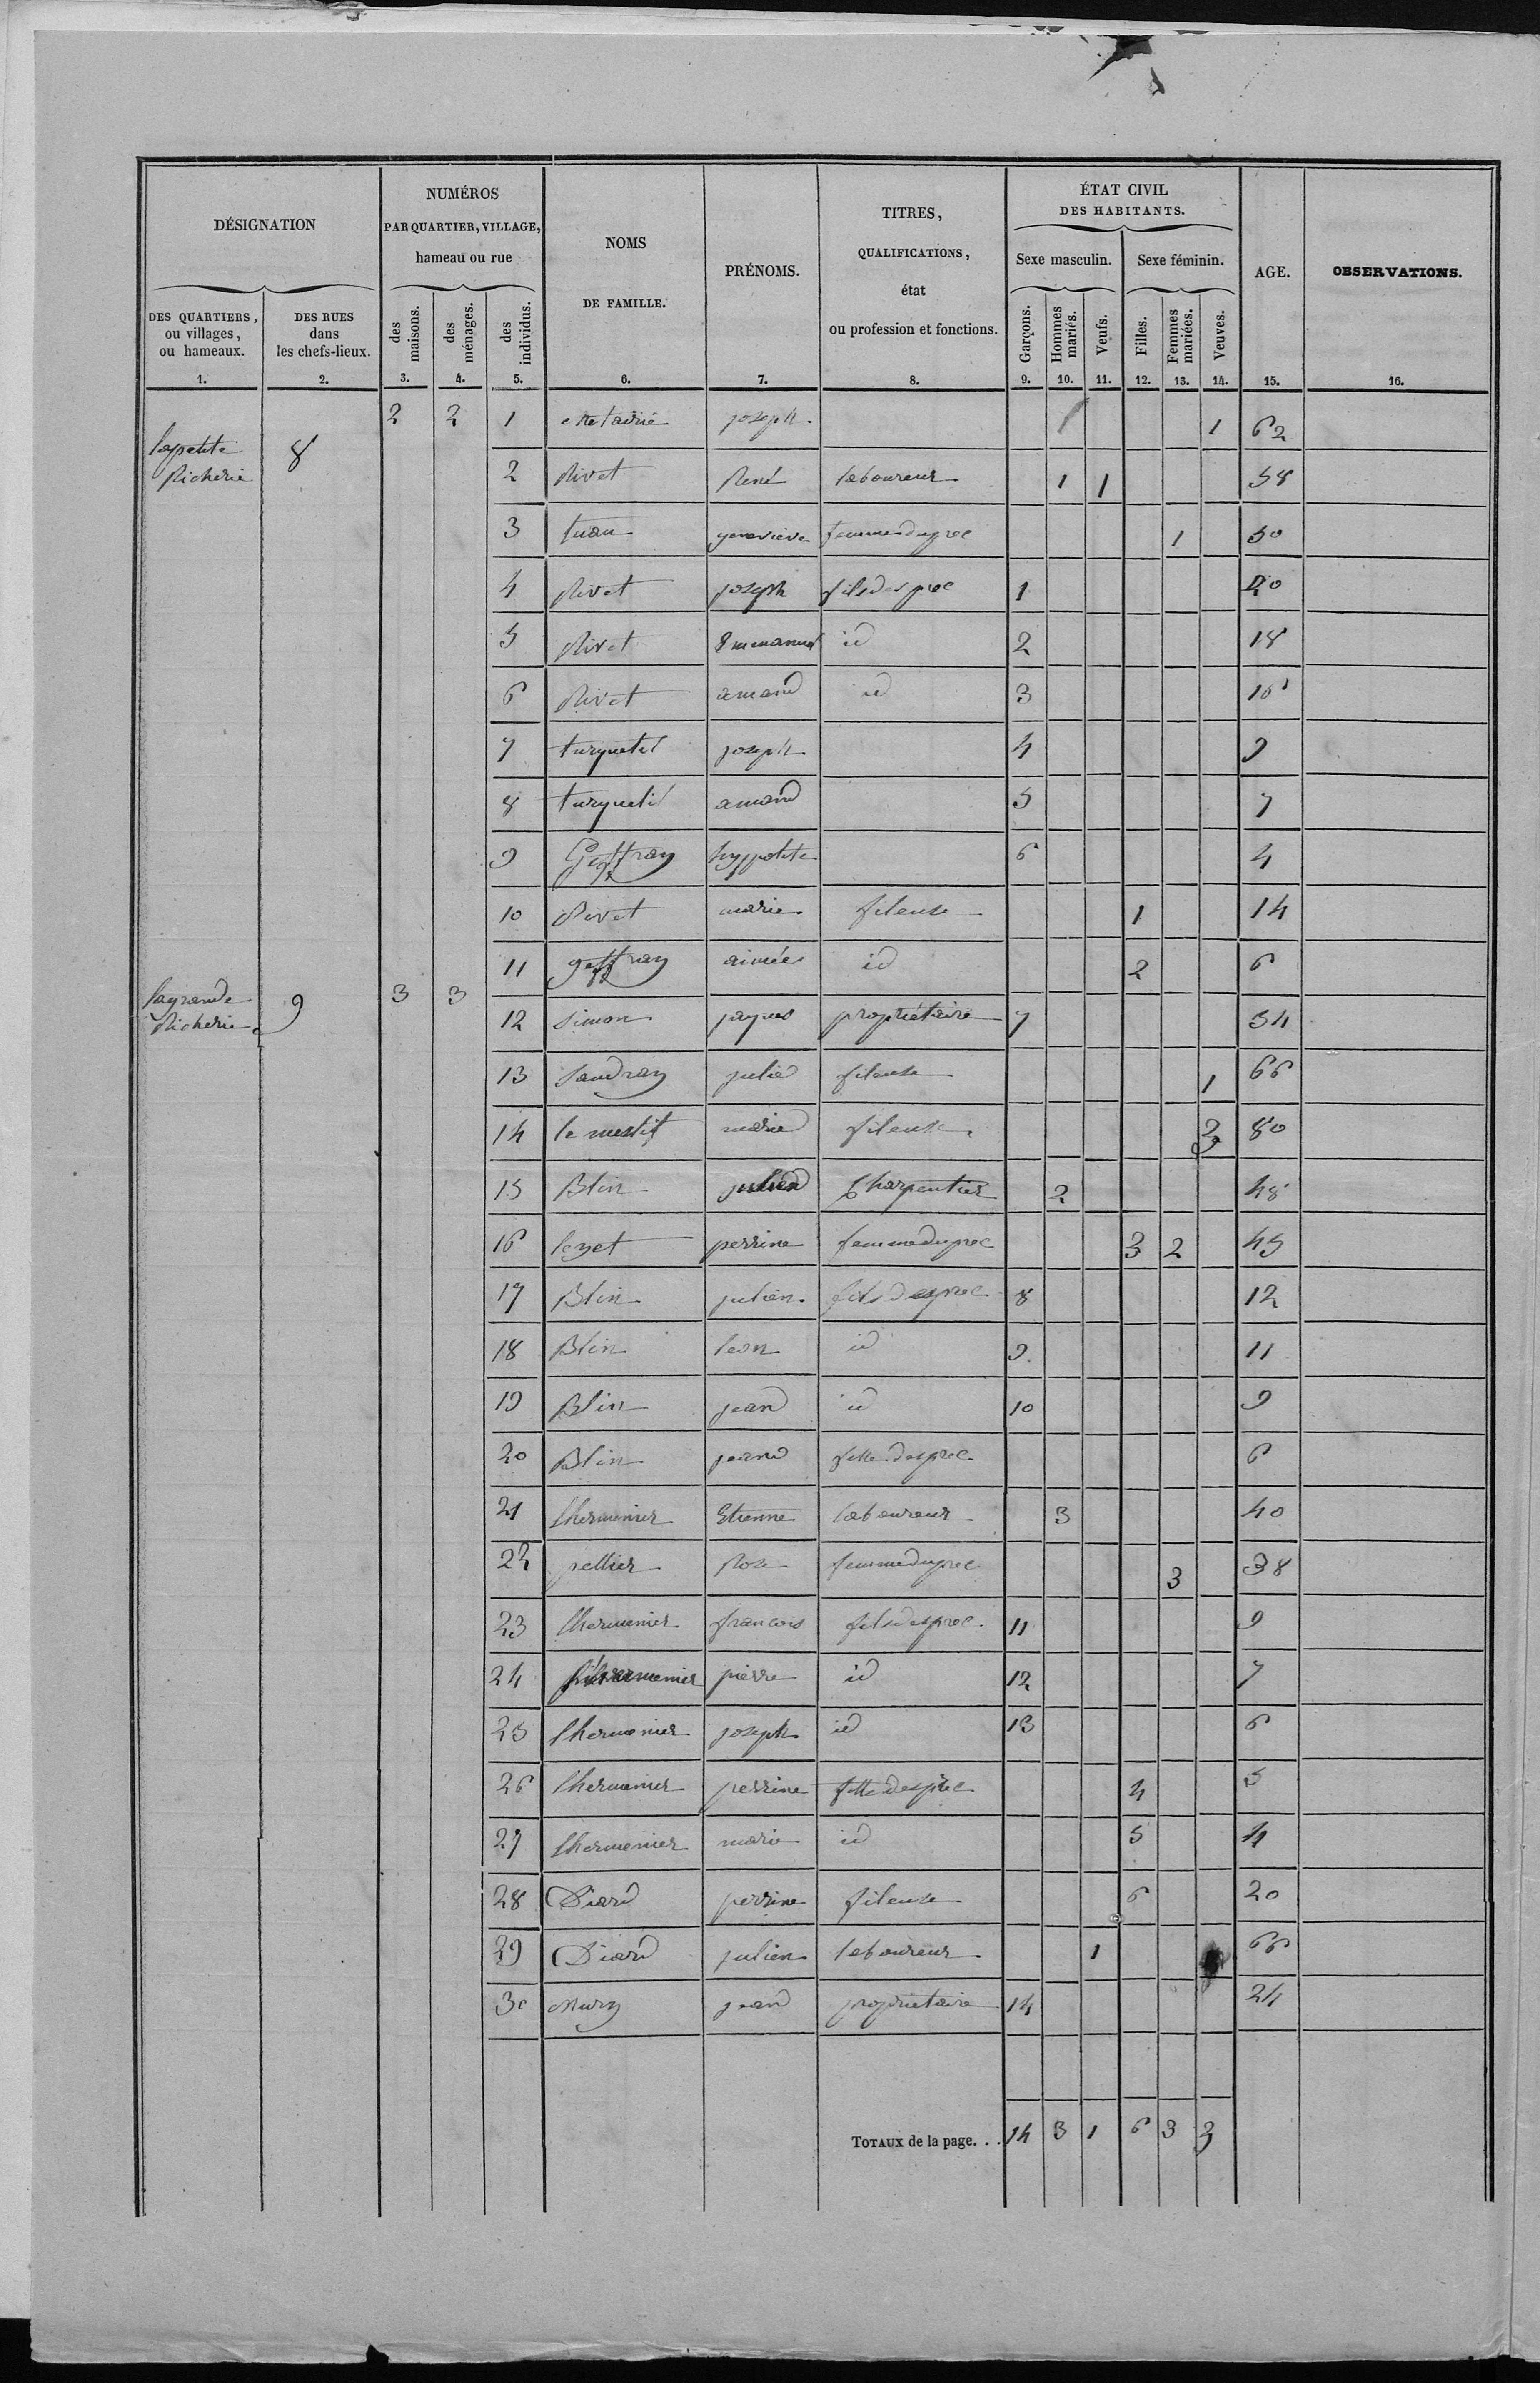 DÉSIGNATION | NUMÉROS PAR QUARTIER, VILLAGE, hameau ou rue | NOMS DE FAMILLE. | PRÉNOMS. | TITRES, QUALIFICATIONS, état ou profession et fonctions. | ÉTAT CIVIL DES HABITANTS. | AGE. | OBSERVATIONS.
DES QUARTIERS, ou villages, ou hameaux. | DES RUES dans les chefs-lieux. | des maisons. | des ménages. | des individus. | Sexe masculin. | Sexe féminin.
Garçons. | Hommes mariés. | Veufs. | Filles. | Femmes mariées. | Veuves.
1. | 2. | 3. | 4. | 5. | 6. | 7. | 8. | 9. | 10. | 11. | 12. | 13. | 14. | 15. | 16.
lapetite Richerie | 8 | 2 | 2 | 1 | joseph | 1 | 1 | 62
2 | Rivet | René | laboureur | 1 | 1 | 58
3 | tuau | genevieve | femme du prec | 1 | 50
4 | Rivet | joseph | fils des prec | 1 | 20
5 | Rivet | Emmanuel | id | 2 | 18
6 | Rivet | amand | id | 3 | 16
7 | turquetil | joseph | 4 | 9
8 | turquetil | amand | 5 | 7
9 | Geffray | hyppolite | 6 | 4
10 | Rivet | marie | fileuse | 1 | 14
11 | geffray | aimées | id | 2 | 6
lagrande Richerie | 9 | 3 | 3 | 12 | simon | jaques | propriétaire | 7 | 54
13 | Landray | julie | fileuse | 1 | 66
14 | marie | fileuse | 80
15 | Blin | julien | Charpentier | 2 | 48
16 | lezet | perrine | femme du prec | 3 | 2 | 45
17 | Blin | julien | fils des prec | 8 | 12
18 | Blin | leon | id | 9 | 11
19 | Blin | jean | id | 10 | 9
20 | Blin | jeane | fille des prec | 6
21 | lhermenier | Etienne | laboureur | 3 | 40
22 | pellier | Rose | femme du prec | 3 | 38
23 | lhermenier | francois | fils des prec | 11 | 9
24 | lhermenier | pierre | id | 12 | 7
25 | lhermenier | joseph | id | 13 | 6
26 | lhermenier | perrine | fille des prec | 4 | 5
27 | lhermenier | marie | id | 5 | 4
28 | Diard | perrine | fileuse | 6 | 20
29 | Diard | julien | laboureur | 1 | 66
30 | jean | proprietaire | 14 | 24
TOTAUX de la page. . . | 14 | 3 | 1 | 6 | 3 | 3